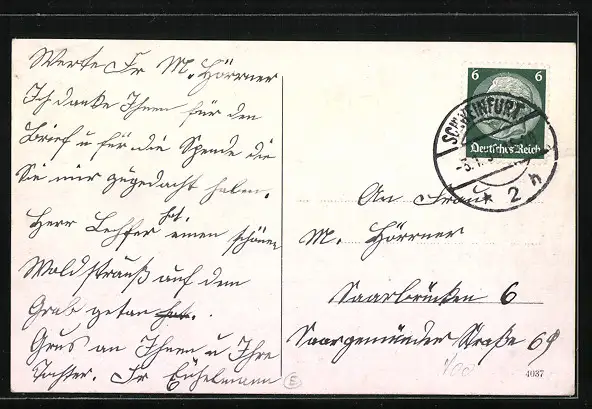 Werte Fr M. Hörner
Ich danke Ihnen für den
Brief u für die Spende die
Sie mir zugedacht haben.
Herr Lehser hat einen schönen
Waldstrauß auf dem
Grab getan hat.
Grus an Ihnen u Ihre
Tochter. Fr Eichelmann
6 6
Deutsches Reich
SCHWEINFURT
2 h
An Frau
M. Hörner
Saarbrücken 6
Saargemünder Straße 69
E
4037